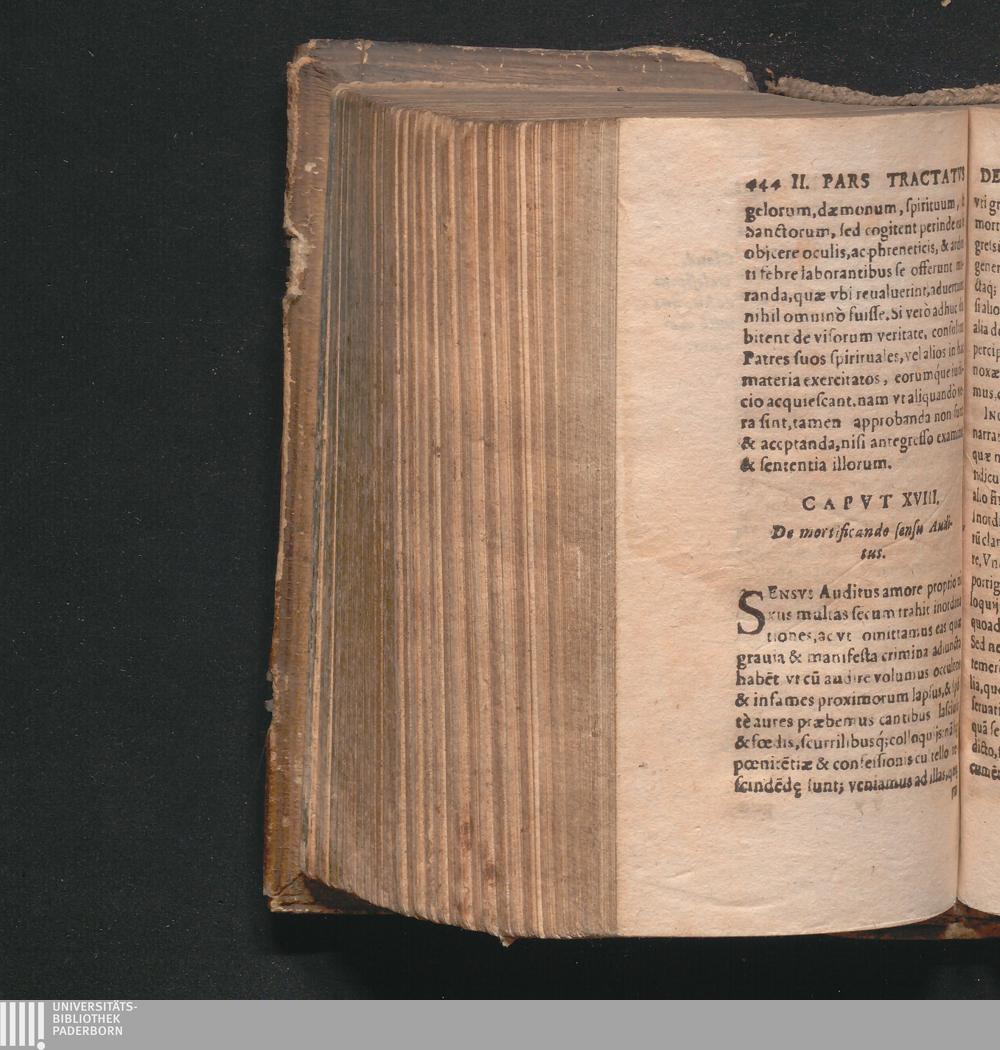 444 II. PARS TRACTATVS
gelorum, dæmonum, ſpirituum,
Sanctorum, ſed cogitent perinde
objcere oculis, ac phreneticis, &
ti febre laborantibus ſe offerunt mi-
randa, quæ vbi reualuerint, aduertunt
nihil omninò fuiſſe. Si verò adhuc
bitent de viſorum veritate, conſulant
Patres ſuos ſpirituales, vel alios in hac
materia exercitatos, eorumque iudi-
cio acquieſcant. nam vt aliquandò ve-
ra ſint, tamen approbanda non ſunt
& acceptanda, niſi antegreſſo examine
& ſententia illorum.
CAPVT XVIII.
De mortificando ſenſu Audi-
tus.
SENSVS Auditus amore proprio
xus multas ſecum trahit inordina
tiones, ac vt omittamus eas quæ
grauia & manifeſta crimina adiuncta
habēt vt cū audire volumus occultos
& infames proximorum lapſus, &
tè aures præbemus cantibus laſciuis
& fœdis, ſcurrilibusq́; colloquijs:
pœnitētiæ & confeſſionis cultello re-
ſcindēdę ſunt; veniamus ad illas, quę
DE
vti
mort
greſſi
gener
ctaq;
ſi alio
alia de
percip
noxæ
mus,
narra
quæ
ridicu
alio
inord
rū clar
te,
porrig
loquij
quoad
Sed ne
temere
lia, quæ
ſeruati
quā ſe
dicto,
cumēt
UNIVERSITÄTS-
BIBLIOTHEK
PADERBORN